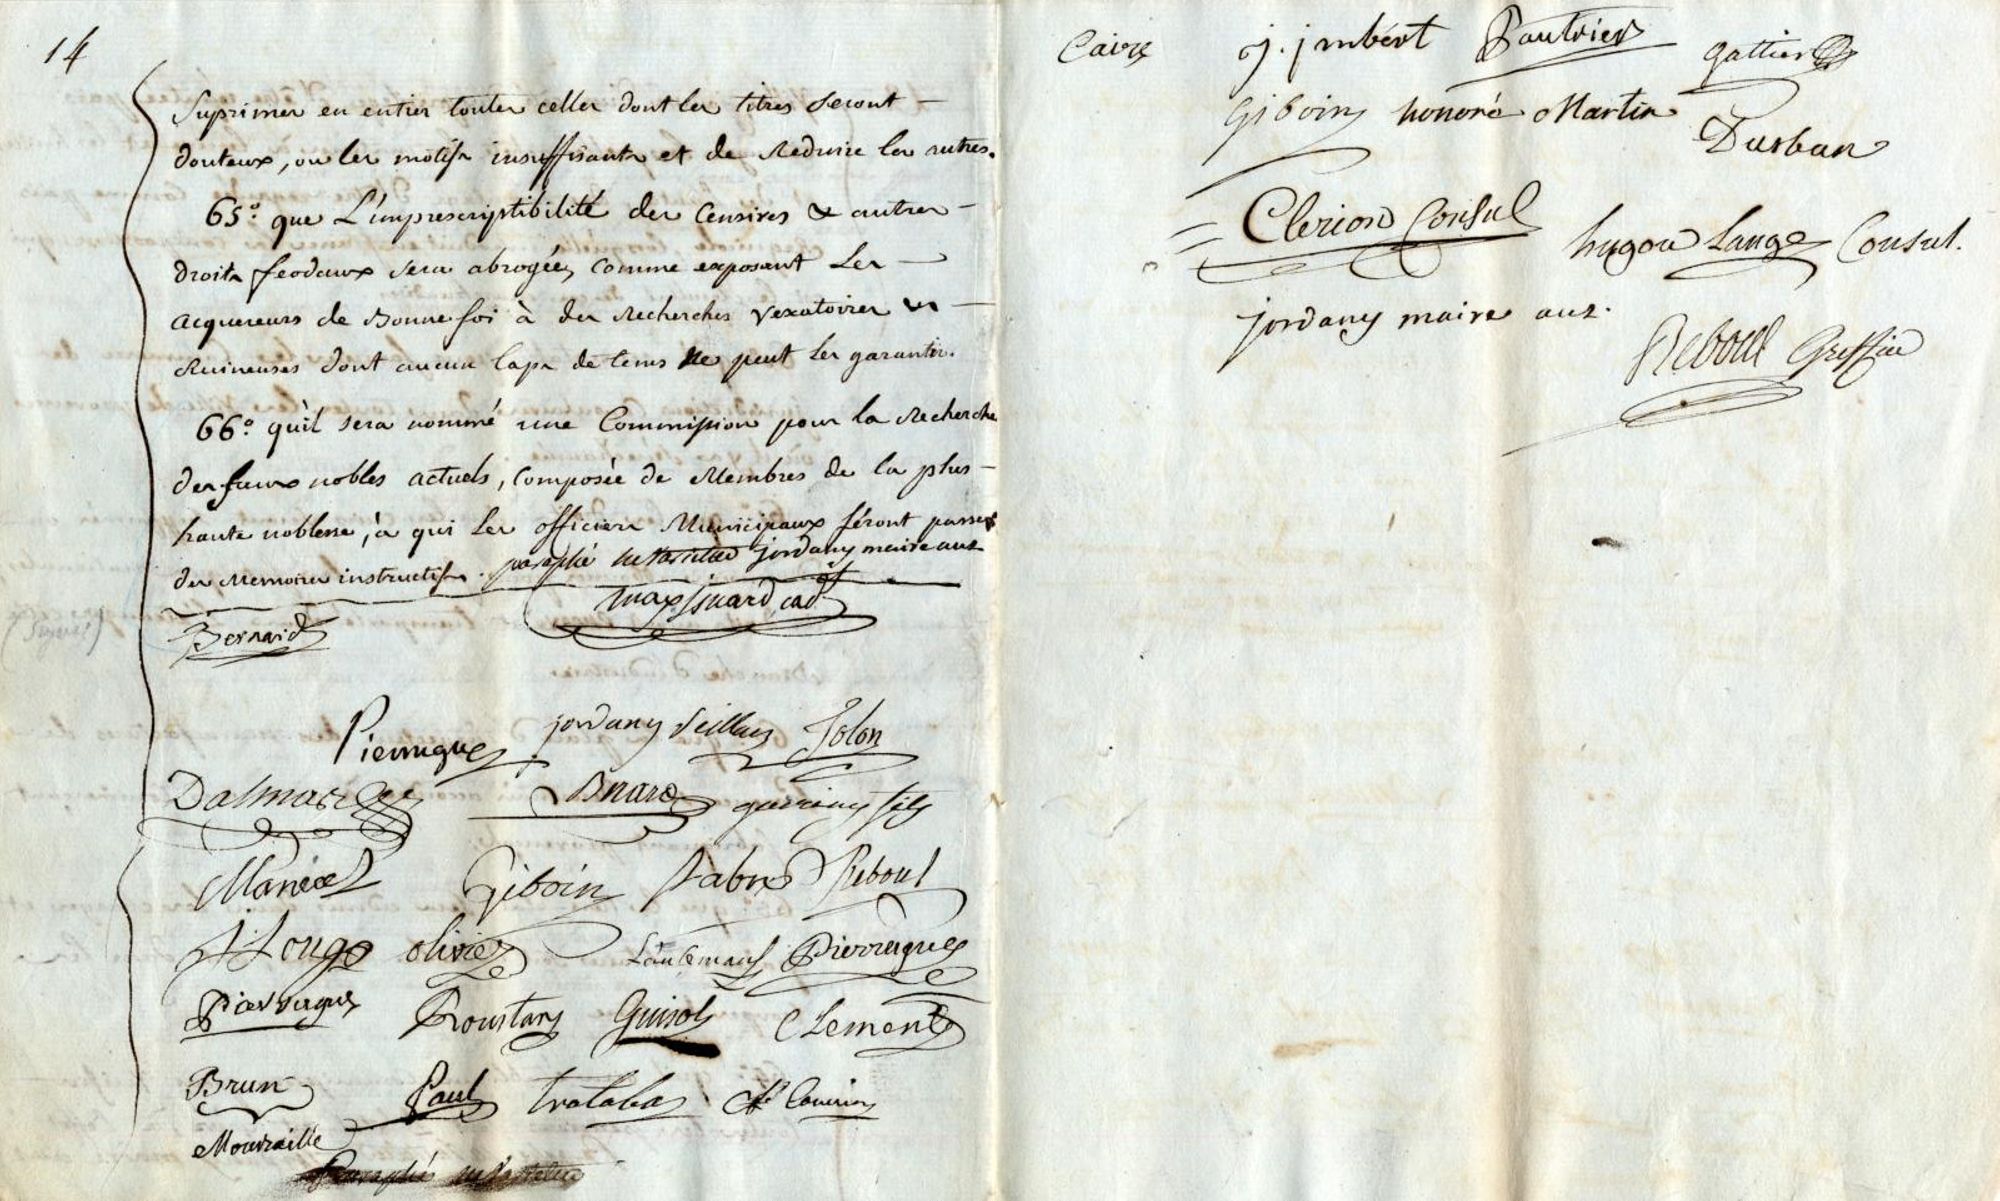 14
Suprimer en entier toutes celles dont les titres seront
douteux, ou les motifs insuffisants et de Reduire les autres.
65°. que L'imprescriptibilité des Censives & autres
droits feodaux sera abrogée, comme exposant Les
acquereurs de Bonne foi à des Recherches Vexatoires et
Ruineuses dont aucun laps de tems ne peut Les garantir.
66°. qu'il sera nommé une Commission pour la Recherche
des faux nobles actuels, composée de Membres de la plus
haute noblesse, à qui Les officiers Municipaux féront passer
des Memoires instructifs. paraphé ne varietur jordany maire aux
Bernard
Pierrugues jordany Seillans Solon
Dalmas
Maneel Giboin Fabre Reboul
J. Longe olivier Pierrugues
Pierrugues Roustang Guisol Clement
Brun Paul
Mouraille
Paraphé ne varietur
Caire j. jmbert Pautrier gattier
Giboin honoré Martin
Durban
Clerion Consul
hugou Lange Consul.
jordany maire aux.
Reboul Greffier